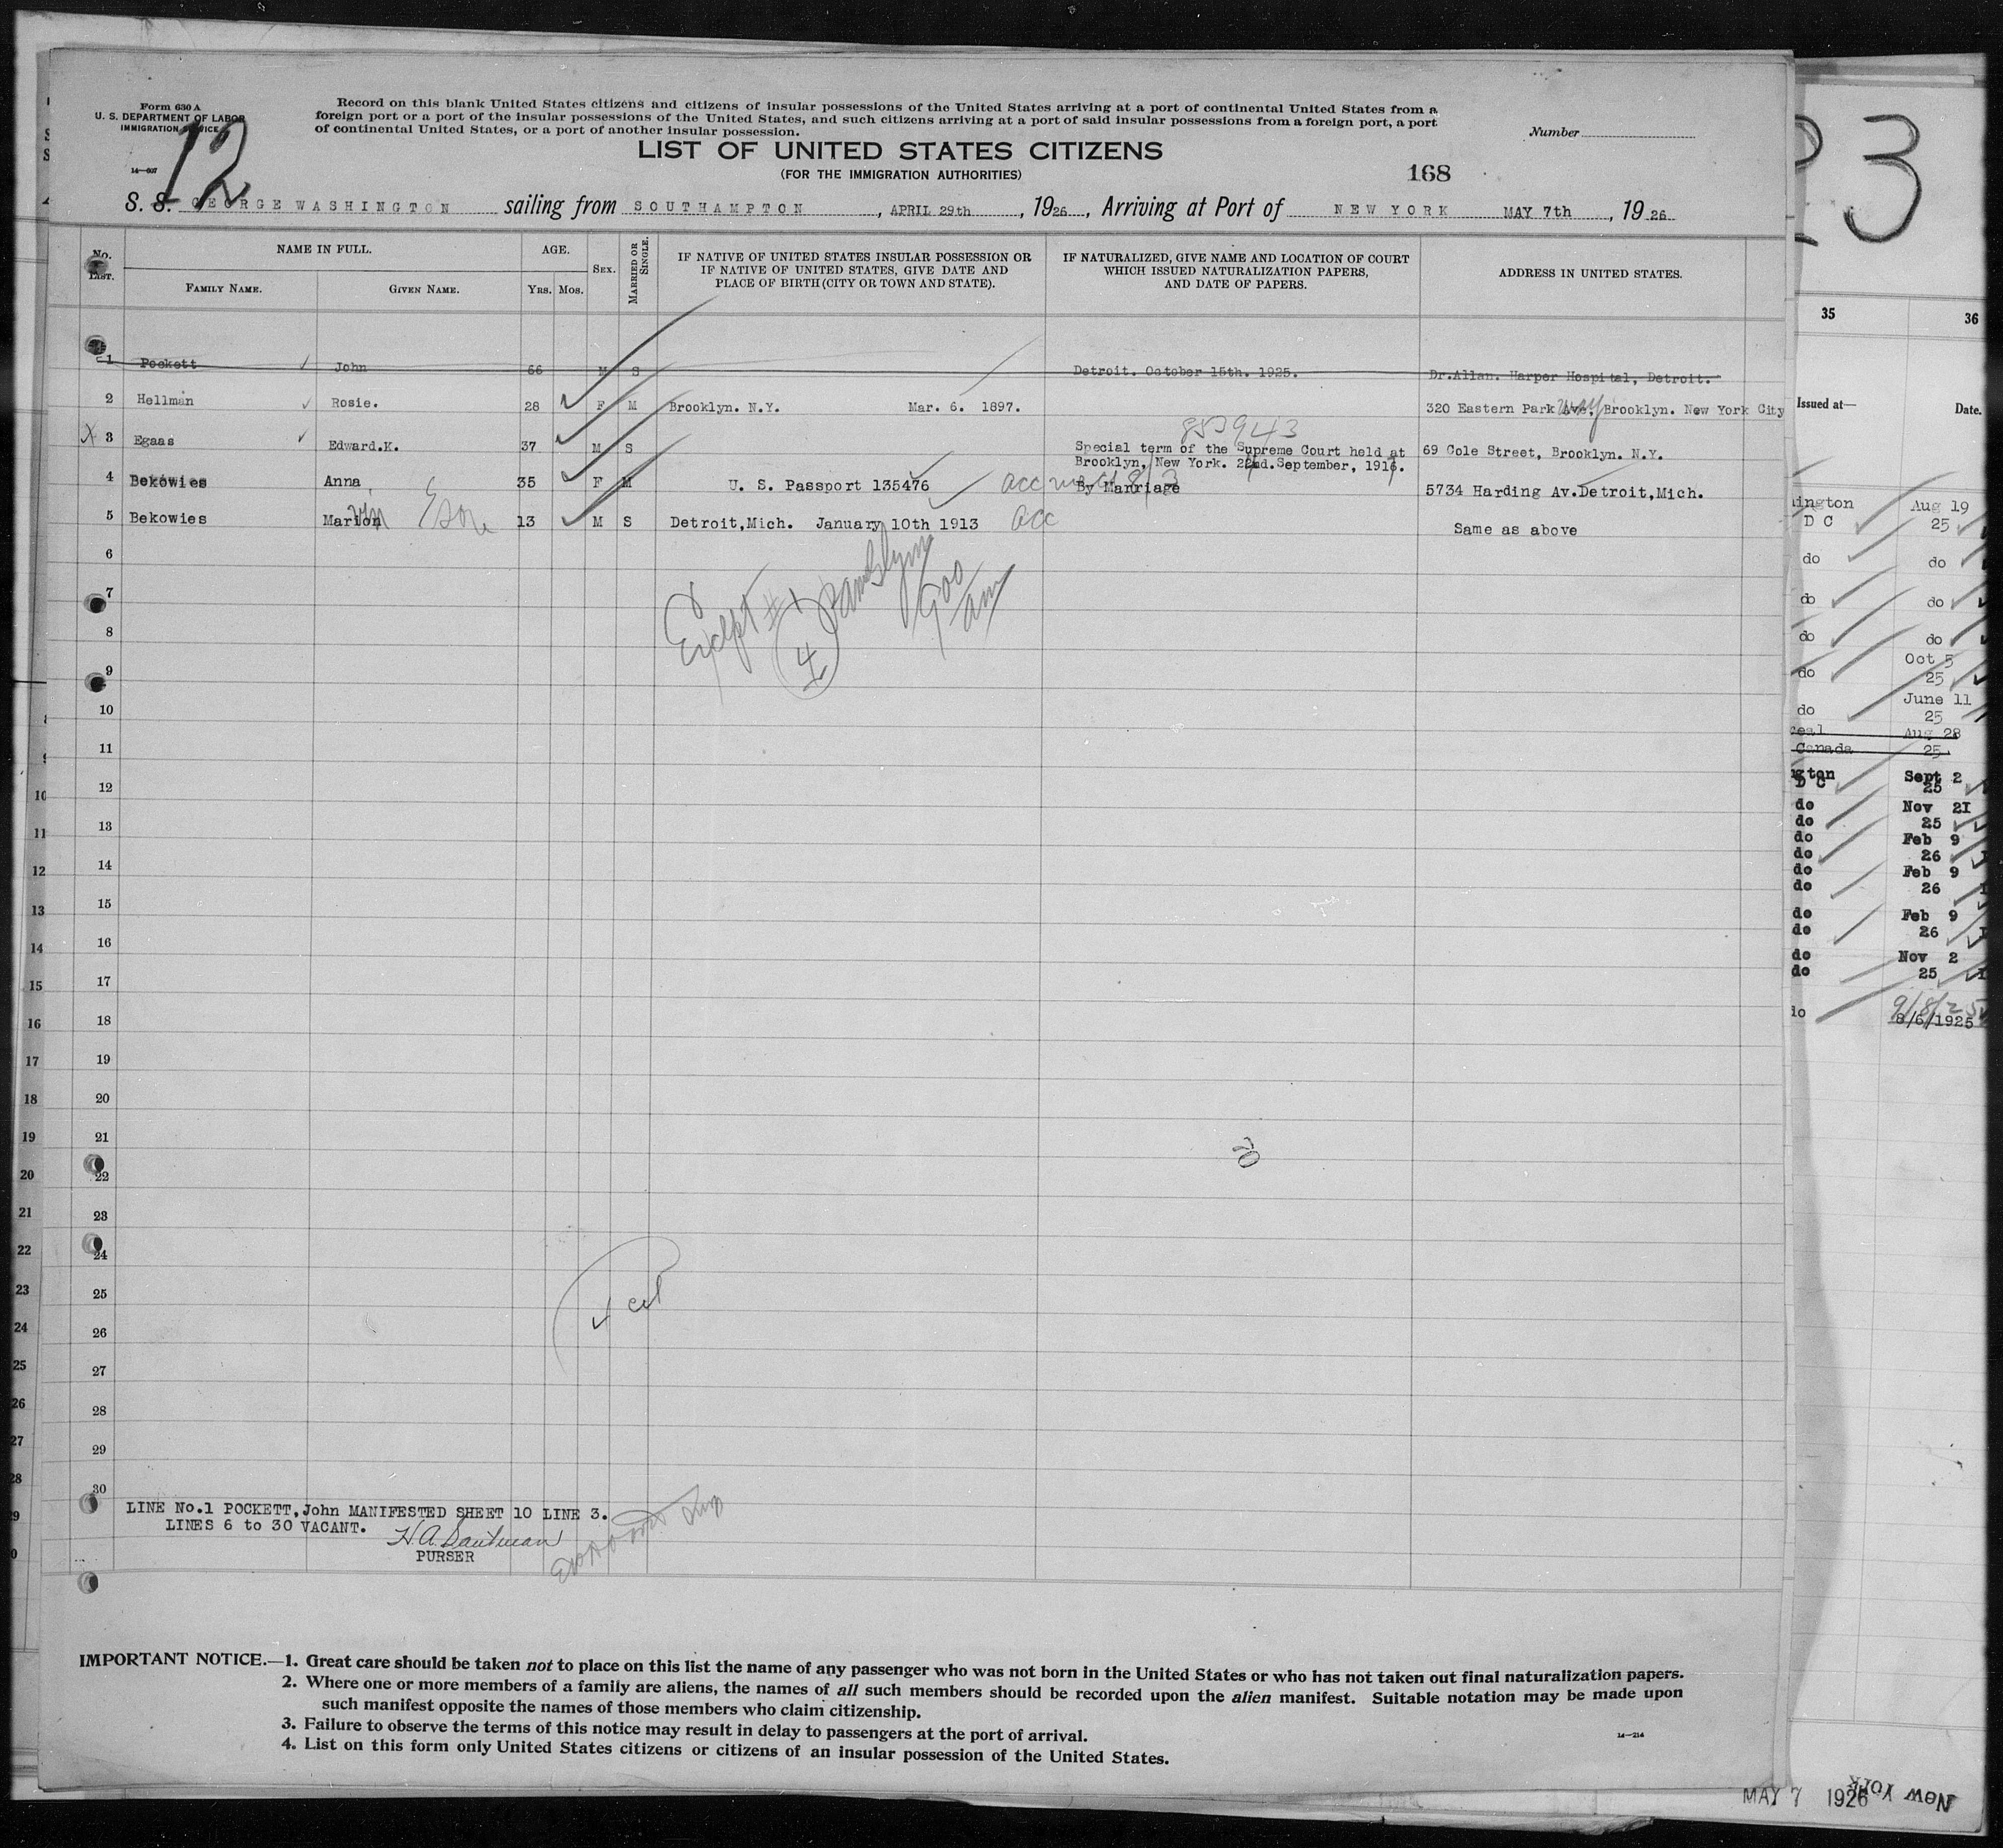 Form 630 A
U. S. DEPARTMENT OF LABOR
IMMIGRATION SERVICE
14—607
12
Record on this blank United States citizens and citizens of insular possessions of the United States arriving at a port of continental United States from a
foreign port or a port of the insular possessions of the United States, and such citizens arriving at a port of said insular possessions from a foreign port, a port
of continental United States, or a port of another insular possession.
Number
LIST OF UNITED STATES CITIZENS
(FOR THE IMMIGRATION AUTHORITIES)
168
S. S. GEORGE WASHINGTON sailing from SOUTHAMPTON, APRIL 29th, 1926, Arriving at Port of NEW YORK MAY 7th, 1926
No. LIST. NAME IN FULL. FAMILY NAME. GIVEN NAME. AGE. YRS. MOS. SEX. MARRIED OR SINGLE.
IF NATIVE OF UNITED STATES INSULAR POSSESSION OR
IF NATIVE OF UNITED STATES, GIVE DATE AND
PLACE OF BIRTH (CITY OR TOWN AND STATE).
IF NATURALIZED, GIVE NAME AND LOCATION OF COURT
WHICH ISSUED NATURALIZATION PAPERS,
AND DATE OF PAPERS.
ADDRESS IN UNITED STATES.
1 Pockett John 66 M S Detroit. October 15th. 1925. Dr.Allan. Harper Hospital, Detroit.
2 Hellman Rosie. 28 F M Brooklyn. N.Y. Mar. 6. 1897. 320 Eastern Park Ave, way Brooklyn. New York City
853943
X 3 Egaas Edward.K. 37 M S Special term of the Supreme Court held at 69 Cole Street, Brooklyn. N.Y.
Brooklyn, New York. 22nd.September, 1916.
4 Bekowies Anna 35 F M U. S. Passport 135476 acc By Marriage 5734 Harding Av.Detroit,Mich.
5 Bekowies Marion vin son 13 M S Detroit,Mich. January 10th 1913 acc Same as above
6
7
8
9
10
11
12
13
14
15
16
17
18
19
20
21
22
23
24
25
26
27
28
29
30
Except #1
4
900
am
LINE No.1 POCKETT,John MANIFESTED SHEET 10 LINE 3.
LINES 6 to 30 VACANT.
PURSER
IMPORTANT NOTICE.—1. Great care should be taken not to place on this list the name of any passenger who was not born in the United States or who has not taken out final naturalization papers.
2. Where one or more members of a family are aliens, the names of all such members should be recorded upon the alien manifest. Suitable notation may be made upon
such manifest opposite the names of those members who claim citizenship.
3. Failure to observe the terms of this notice may result in delay to passengers at the port of arrival.
4. List on this form only United States citizens or citizens of an insular possession of the United States.
14—214
23
35 36
Issued at— Date.
ington Aug 19
D C 25
do do
do do
do do
do Oct 5
25
do June 11
25
Aug 28
Canada 25
gton Sept 2
D C 25
do Nov 21
do 25
do Feb 9
do 26
do Feb 9
do 26
do Feb 9
do 26
do Nov 2
do 25
9/8/25
do 8/6/1925
10
11
12
13
14
15
16
17
18
19
20
21
22
23
24
25
26
27
28
MAY 7 1926
New York